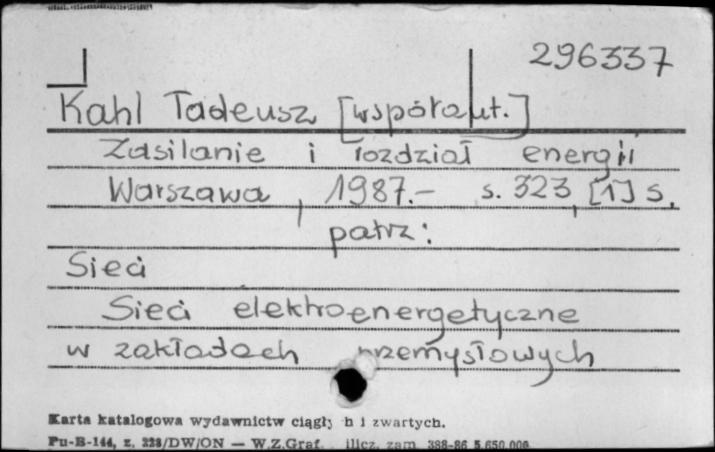 296337
Kahl Tadeusz [współaut.]
Zasilanie i rozdział energii
Warszawa, 1987.- s. 323, [1] s.
patrz:
Sieci
Sieci elektroenergetyczne
w zakładach przemysłowych
Karta katalogowa wydawnictw ciągły h i zwartych.
Pu-B-144, z. 228/DW/ON — W.Z.Graf. ilicz. zam. 388-86 5.650.000